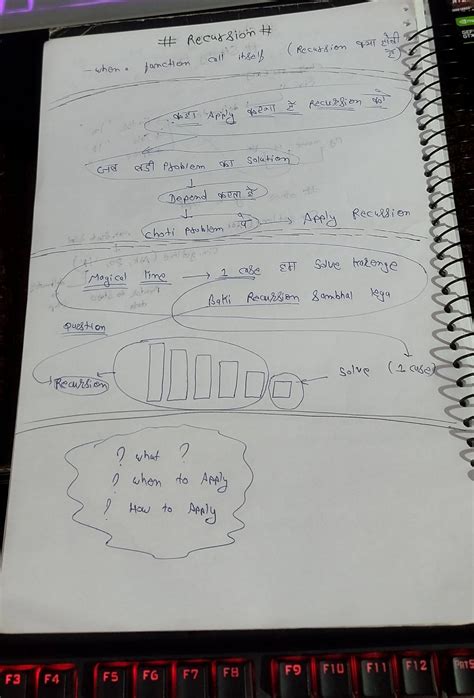 # Recursion #
- when a function call itself (Recursion क्या होती है
कहा Apply करना है Recursion को
जब बड़ी Problem का Solution
Depend करता है
Choti Problem पे → Apply Recursion
Magical line → 1 case हम solve karenge
Baki Recursion Sambhal lega
Question
Recursion
Solve (1 case)
? what ?
? when to Apply
? How to Apply
F3 F4 F5 F6 F7 F8 F9 F10 F11 F12